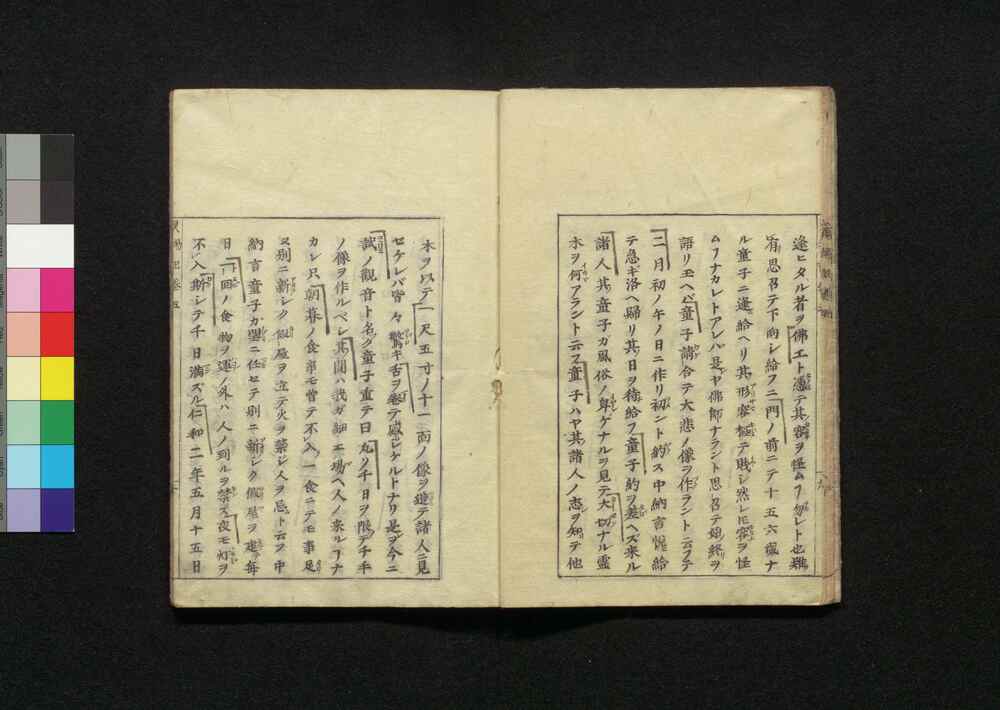 逢ヒタル者ヲ佛工ト憑テ其容ヲ怪ムヿ勿レト也難
有思召テ下向シ給フニ門ノ前ニテ十五六歳ナ
ル童子ニ逢給ヘリ其形容極テ賎シ然レ𪜈容ヲ怪
ムヿナカレトアレバ是ヤ佛師ナラント思召テ始終ヲ
語リ玉ヘバ童子請合テ大悲ノ像ヲ作ラント云フテ
二月初ノ午ノ日ニ作リ初ント約ス中納言悦給
テ急ギ洛ヘ歸リ其日ヲ待給フ童子約ヲ差ヘズ来ル
諸人其童子ガ風俗ノ卑ゲナルヲ見テ大切ナル霊
木ヲ何アラント云フ童子ハヤ其諸人ノ志ヲ知テ他
木ヲ以テ一尺五寸ノ十一面ノ像ヲ造テ諸人ニ見
セケレバ皆々驚キ舌ヲ巻テ感レケルトナリ是ヲ今ニ
試ノ觀音ト名ク童子重テ曰丸リ千日ヲ限テ千手
ノ像ヲ作ルベシ其間ハ我ガ細工場ヘ人ノ来ルヿナ
カレ只朝暮ノ食事モ曽テ不入一食ニテモ事足
ヌ別ニ新シク飯屋ヲ立テ火ヲ禁シ人ヲ忌ト云フ中
納言童子カ望ニ任セテ別ニ新シク假屋ヲ建毎
日一回ノ食物ヲ運ノ外ハ人ノ到ルヲ禁ズ夜モ灯ヲ
不入期シテ千日満ズル仁和二年五月十五日